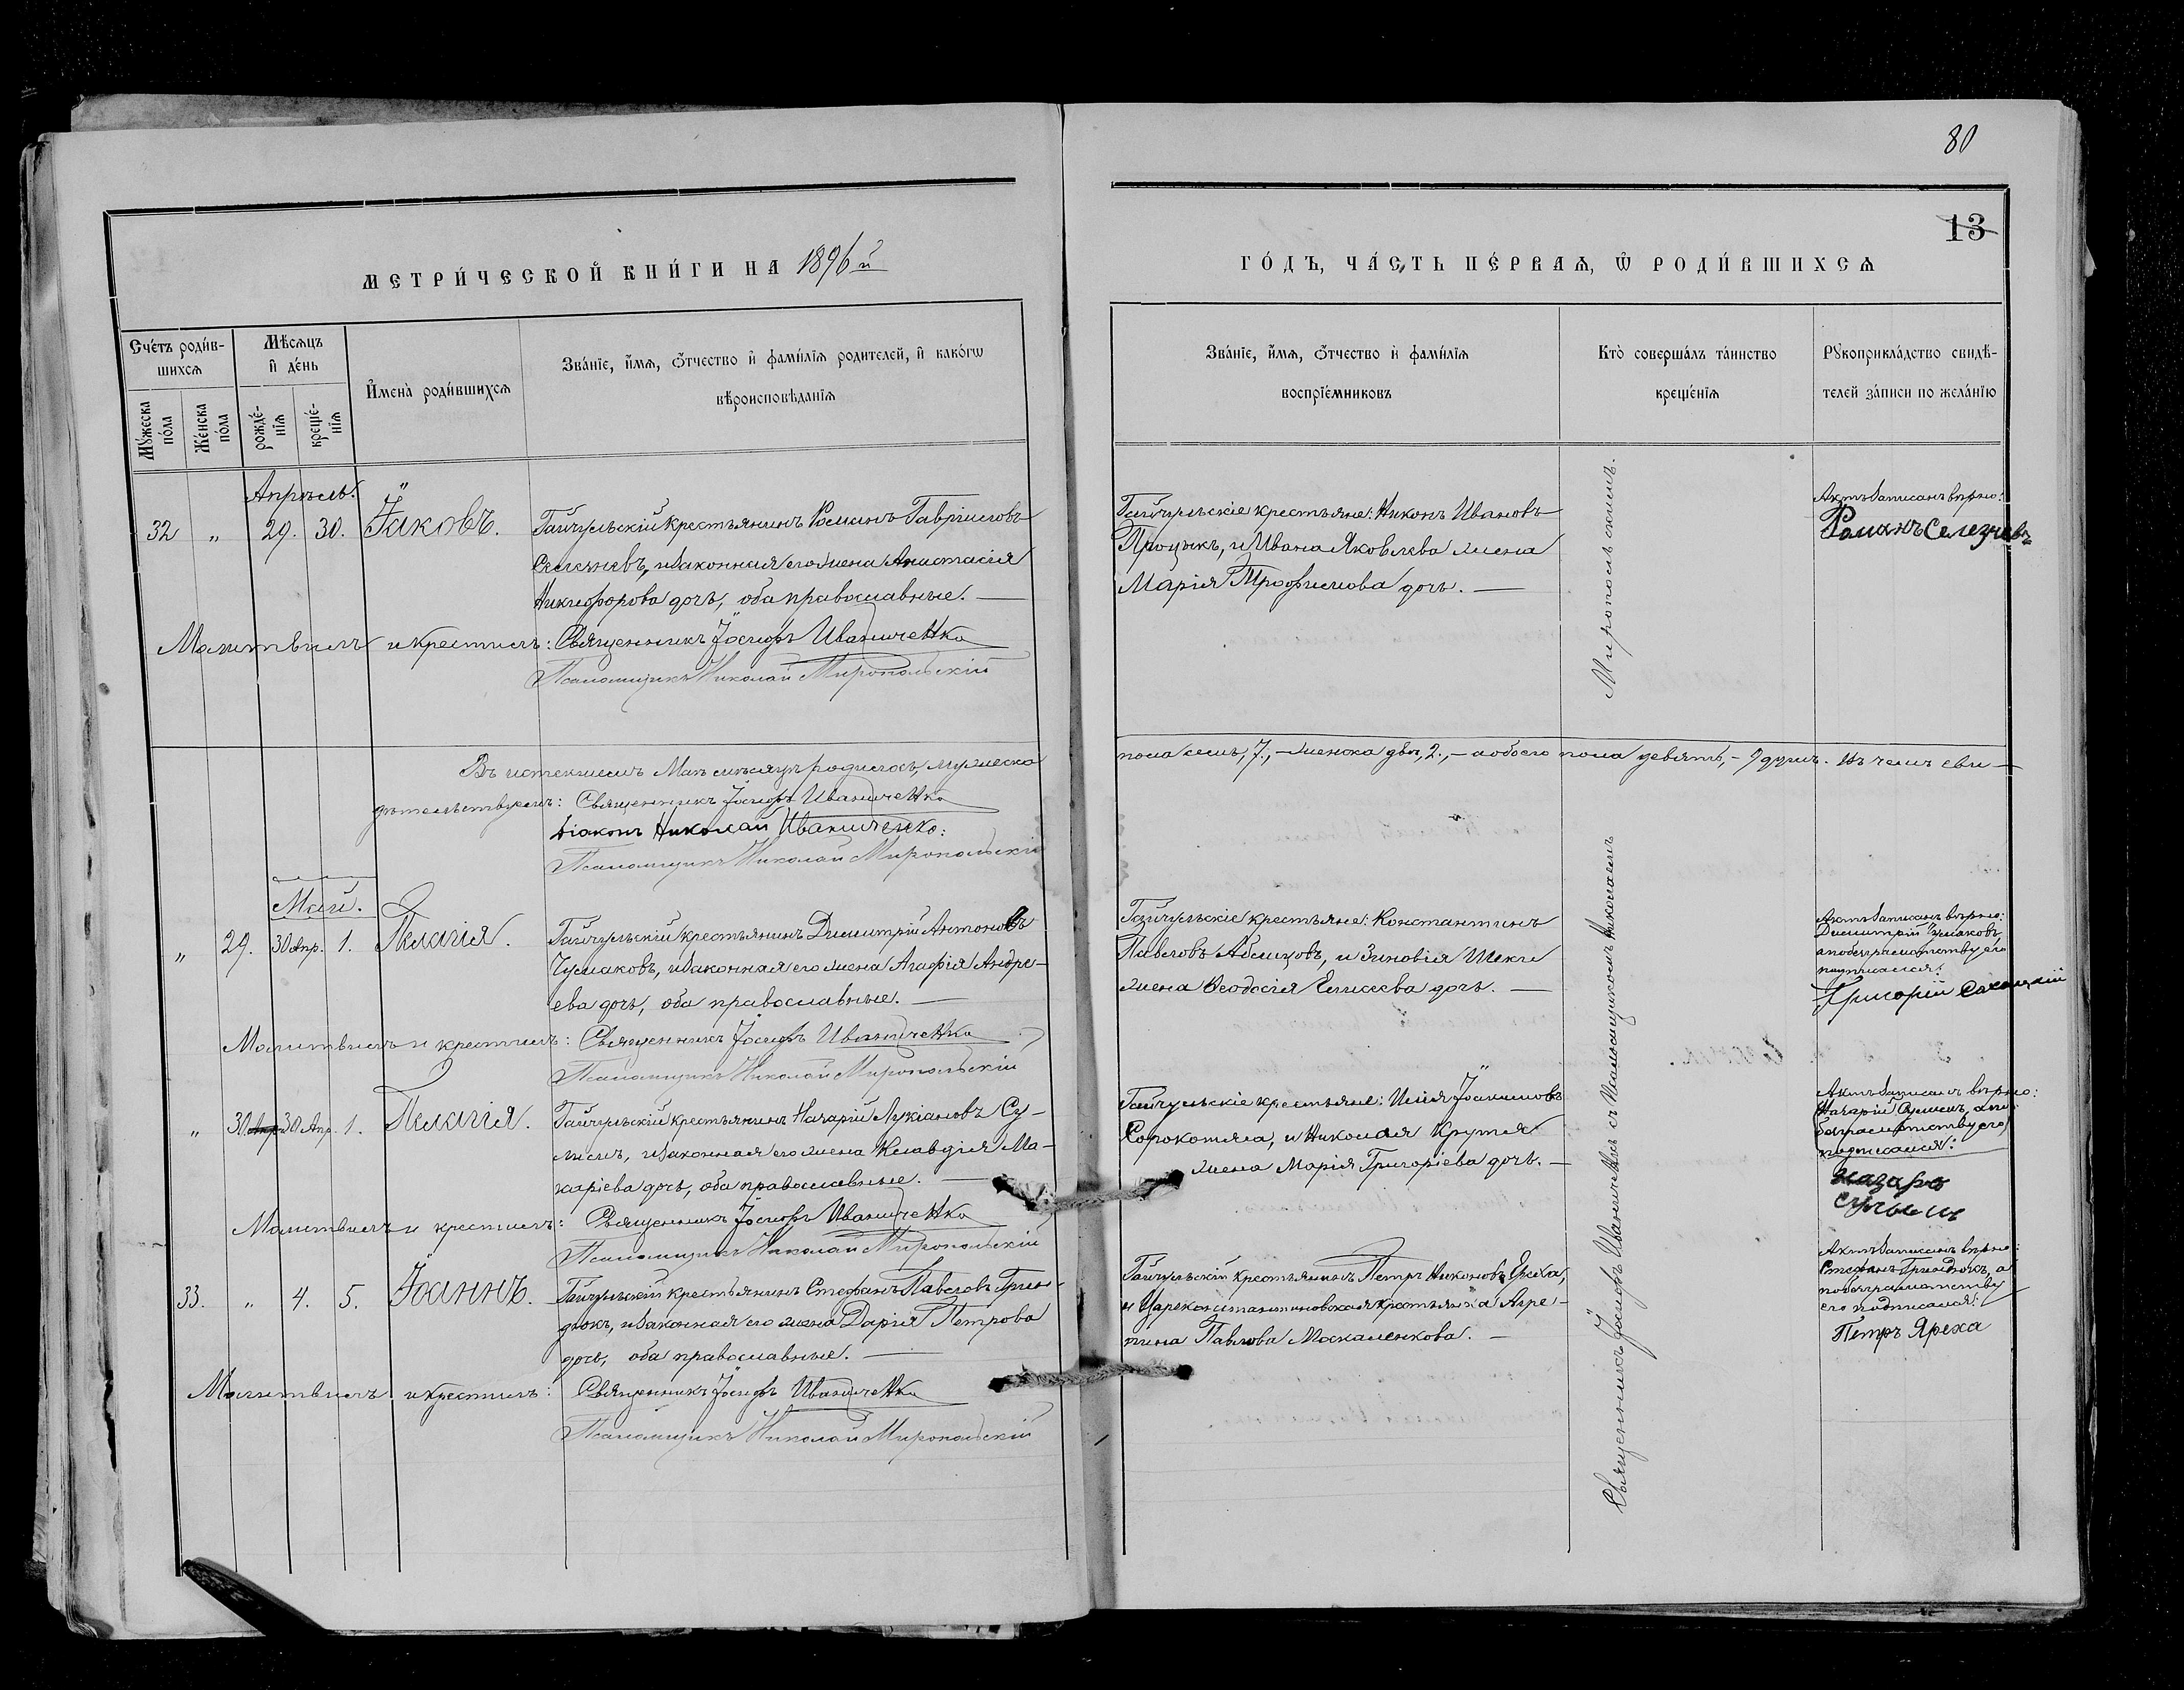 80
13
МЕТРИ́ЧЕСКОЙ КНИ́ГИ НА 1896 й
ГО́ДЪ, ЧА́СТЬ ПЕ́РВАѦ, Ѽ РОДИ́ВШИХСѦ
Сче́тъ роди́в-
шихсѧ
Мѣ́сѧцъ
и҆ де́нь
И҆мена̀ роди́вшихсѧ
Зва́нїе, и҆́мѧ, ѻ҆́тчество и҆ фами́лїѧ родителей, и҆ како́гѡ
вѣроисповѣ́данїѧ
Мꙋ́жеска
по́ла
Же́нска
по́ла
рожде́-
нїѧ
креще́-
нїѧ
Зва́нїе, и҆́мѧ, ѻ҆́тчество и҆ фами́лїѧ
воспрїе́мниковъ
Кто̀ соверша́лъ та́инство
креще́нїѧ
Рꙋкоприкла́дство свидѣ́-
телей за́писи по жела́нїю
Апрѣль.
32 „ 29. 30. Іаковъ.
Гайчульскій крестьянинъ Романъ Гавріиловъ
Селезневъ, и законная его жена Анастасія
Никифорова дочь, оба православные.
Молитвилъ и крестилъ: Священникъ Іосифъ Иваниченко
Псаломщикъ Николай Миропольскій
Гайчульскіе крестьяне: Никонъ Ивановъ
Процыкъ, и Ивана Яковлева жена
Марія Трофимова дочь.
Актъ записанъ вѣрно:
Романъ Селезневъ
Въ истекшемъ Маѣ мѣсяцѣ родилось, мужеска
пола семь, 7., – женска двѣ, 2., – а обоего пола девять, – 9 душъ. Въ чемъ сви-
дѣтельствуемъ: Священникъ Іосифъ Иваниченко
Діаконъ Николай Иваниченко:
Псаломщикъ Николай Миропольскій
Май.
„ 29. 30 Апр. 1. Пелагія.
Гайчульскій крестьянинъ Димитрій Антоновъ
Чумаковъ, и законная его жена Агафія Андре-
ева дочь, оба православные.
Молитвилъ и крестилъ: Священникъ Іосифъ Иваниченко
Псаломщикъ Николай Миропольскій
Гайчульскіе крестьяне: Константинъ
Павловъ и Зиновія
жена Ѳеодосія Елисеева дочь.
Актъ записанъ вѣрно:
Димитрій Чумаковъ
а по безграмотству его
подписался:
Григорій
„ 30 Апр 30 Апр. 1. Пелагія.
Гайчульскій крестьянинъ Назарій Лукіановъ Су-
лимъ, и законная его жена Клавдія Ма-
каріева дочь, оба православные.
Молитвилъ и крестилъ: Священникъ Іосифъ Иваниченко
Псаломщикъ Николай Миропольскій
Гайчульскіе крестьяне: Илія Іоакимовъ
Сорокотяга, и Николая Крутя
жена Марія Григоріева дочь.
Актъ записанъ вѣрно:
Назарій Сулимъ, а по
безграмотству его
подписался:
Назаръ
Сулимъ
33. „ 4. 5. Іоаннъ.
Гайчульскій крестьянинъ Стефанъ Павловъ Грин-
дюкъ, и законная его жена Дарія Петрова
дочь, оба православные.
Молитвилъ и крестилъ: Священникъ Іосифъ Иваниченко
Псаломщикъ Николай Миропольскій
Гайчульскій крестьянинъ Петръ Никоновъ Ереха,
и Цареконстантиновская крестьянка Агре-
пина Павлова Москаленкова.
Актъ записанъ вѣрно:
Стефанъ Гриндюкъ, а
по безграмотству
его подписался:
Петръ Яреха
Священникъ Іосифъ Иваниченко съ Псаломщикомъ Николаемъ
Миропольскимъ.